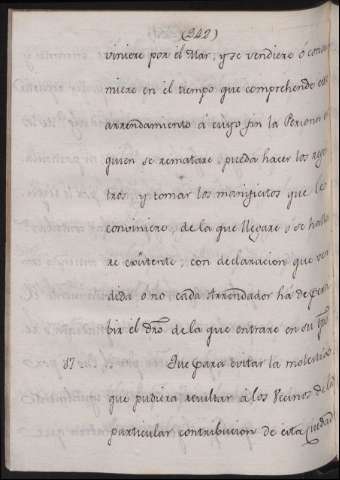 (242)
viniere por el Mar, y se vendiere ó consu
miere en el tiempo que comprehende este
arrendamiento á cuyo fin la Persona en
quien se rematare, pueda hacer los regis
tros, y tomar los manifiestos que le
conviniere, de la que llegare o se halla
re existente; con declaracion que ven
dida ó no cada Arrendador há de perci
bir el dro. de la que entrare en su tpo.
87. Que para evitar la molestia
que pudiera resultar á los Vecinos de la
particular contribucion de esta Ciudad